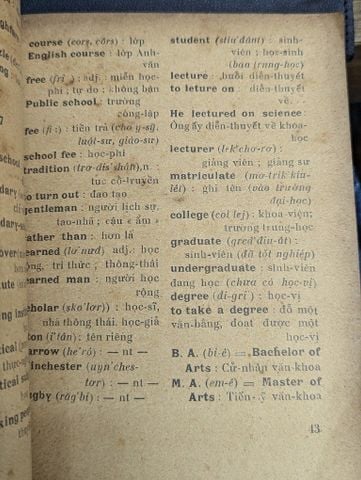 course (cors, côrs) : lớp
English course : lớp Anh-
văn
free (fri) : adj. miễn học-
phí ; tự do ; không bận
Public school : trường
công-lập
fee (fi:) : tiền trả (cho y-sỹ,
luật-sư, giáo-sư)
school fee : học-phí
tradition (trơ-dis'shân),n. :
tục cổ-truyền
to turn out : đào tạo
gentleman : người lịch sự.
tao-nhã ; cậu « ấm »
rather than : hơn là
earned adj.: học
rộng, trí thức ; thông-thái
earned man : người học
rộng
scholar (sko'lơr) : học-sĩ,
nhà thông thái. học-giả
ton (i'tân) : tên riêng
arrow (he'rô) : — nt —
inchester (uyn'ches-
tơr) : — nt —
ugby (răg'bi) : — nt —
student (stiu'dânt) : sinh-
viên ; học-sinh
(ban trung-học)
lecture : buổi diễn-thuyết
to leture on : diễn-thuyết
về. .
He lectured on science:
Ông ấy diễn-thuyết về khoa-
học
lecturer (lek'chơ-rơ) :
giảng viên ; giảng sư
matriculate (mơ-trik'kiu-
lêt) : ghi tên (vào trường
đại-học)
college (col'lej) : khoa-viện;
trường trung-học
graduate (gred'điu-ât) :
sinh-viên (đã tốt nghiệp)
undergraduate : sinh-viên
đang học (chưa có học-vị)
degree (di-gri) : học-vị
to take a degree : đỗ một
văn-bằng, đoạt được một
học-vị
B. A. (bi-ê) = Bachelor of
Arts : Cử-nhân văn-khoa
M. A. (em-ê) = Master of
Arts : Tiến-sỹ văn-khoa
43